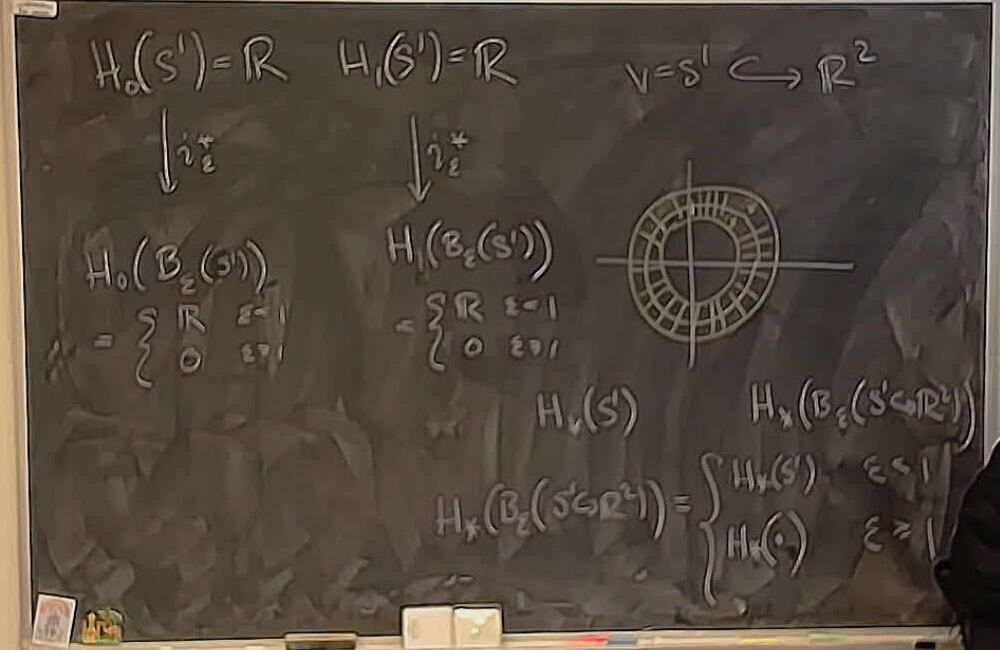 H₀(S¹) = ℝ
H₁(S¹) = ℝ
V = S¹ ↪ ℝ²
↓ i_ε^*
↓ i_ε^*
H₀(B_ε(S¹))
= { ℝ ε<1
0 ε≥1
H₁(B_ε(S¹))
= { ℝ ε<1
0 ε≥1
H_*(S¹)
H_*(B_ε(S¹↪ℝ²))
H_*(B_ε(S¹↪ℝ²)) = { H_*(S¹) ε<1
H_*(·) ε≥1